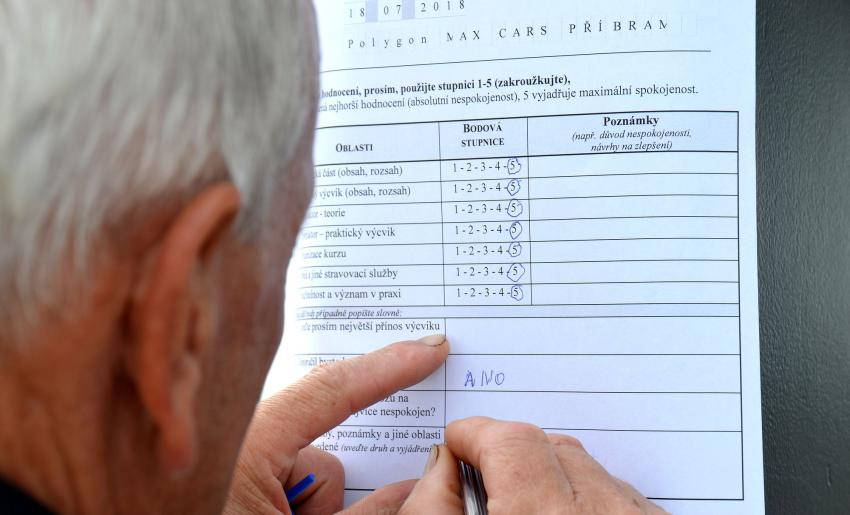 18 07 2018
Polygon MAX CARS PŘÍBRAM
hodnocení, prosím, použijte stupnici 1-5 (zakroužkujte),
nejhorší hodnocení (absolutní nespokojenost), 5 vyjadřuje maximální spokojenost.
OBLASTI BODOVÁ STUPNICE Poznámky
(např. důvod nespokojenosti,
návrhy na zlepšení)
část (obsah, rozsah) 1 - 2 - 3 - 4 - 5
výcvik (obsah, rozsah) 1 - 2 - 3 - 4 - 5
- teorie 1 - 2 - 3 - 4 - 5
– praktický výcvik 1 - 2 - 3 - 4 - 5
kurzu 1 - 2 - 3 - 4 - 5
a jiné stravovací služby 1 - 2 - 3 - 4 - 5
a význam v praxi 1 - 2 - 3 - 4 - 5
případně popište slovně:
prosím největší přínos výcviku
ANO
na
nespokojen?
poznámky a jiné oblasti
(uveďte druh a vyjádření